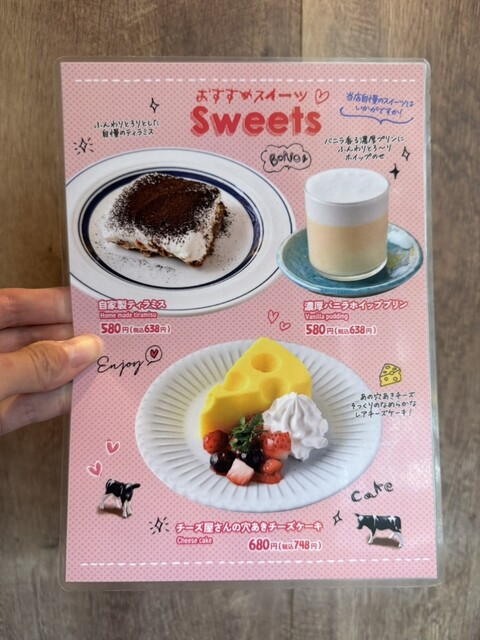 おすすめスイーツ
Sweets
当店自慢のスイーツは
いかがですか！
ふんわりとろりとした
自慢のティラミス
Bonne♪
バニラ香る濃厚プリンに
ふんわりとろ〜り
ホイップのせ
自家製ティラミス
Home made tiramisu
580円(税込638円)
濃厚バニラホイッププリン
Vanilla pudding
580円(税込638円)
Enjoy
あの穴あきチーズ
そっくりのなめらかな
レアチーズケーキ！
Cake
チーズ屋さんの穴あきチーズケーキ
Cheese cake
680円(税込748円)